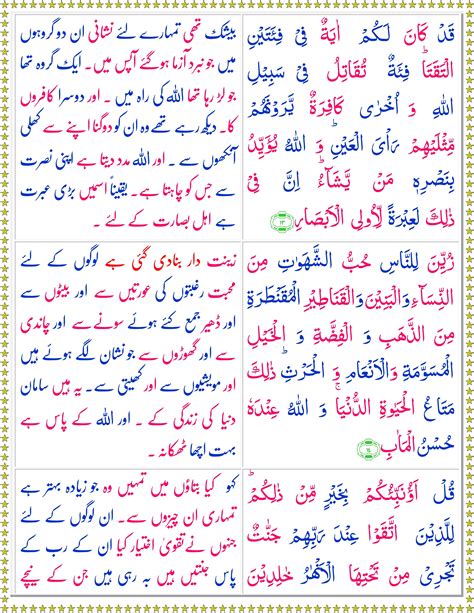 قَدْ كَانَ لَكُمْ اٰيَةٌ فِىْ فِئَتَيْنِ
الْتَقَتَا ؕ فِئَةٌ تُقَاتِلُ فِىْ سَبِيْلِ
اللّٰهِ وَ اُخْرٰى كَافِرَةٌ يَّرَوْنَهُمْ
مِّثْلَيْهِمْ رَاْىَ الْعَيْنِ ؕ وَ اللّٰهُ يُؤَيِّدُ
بِنَصْرِهٖ مَنْ يَّشَآءُ ؕ اِنَّ فِىْ
ذٰلِكَ لَعِبْرَةً لِّاُولِى الْاَبْصَارِ ۱۳
بیشک تھی تمہارے لئے نشانی ان دو گروہوں
میں جو نبرد آزما ہوگئے آپس میں۔ ایک گروہ تھا
جو لڑ رہا تھا اللہ کی راہ میں ۔ اور دوسرا کافروں
کا۔ دیکھ رہے تھے وہ ان کو دوگنا اپنے سے کھلی
آنکھوں سے ۔ اور اللہ مدد دیتا ہے اپنی نصرت
سے جس کو چاہتا ہے۔ یقیناً اسمیں بڑی عبرت
ہے اہل بصارت کے لئے ۔
زُيِّنَ لِلنَّاسِ حُبُّ الشَّهَوٰتِ مِنَ
النِّسَآءِ وَالْبَنِيْنَ وَالْقَنَاطِيْرِ الْمُقَنْطَرَةِ
مِنَ الذَّهَبِ وَ الْفِضَّةِ وَ الْخَيْلِ
الْمُسَوَّمَةِ وَالْاَنْعَامِ وَ الْحَرْثِ ؕ ذٰلِكَ
مَتَاعُ الْحَيٰوةِ الدُّنْيَا ۚ وَ اللّٰهُ عِنْدَهٗ
حُسْنُ الْمَاٰبِ ۱٤
زینت دار بنادی گئی ہے لوگوں کے لئے
محبت رغبتوں کی عورتیں سے اور بیٹوں سے
اور ڈھیر جمع کئے ہوئے سونے سے اور چاندی
سے اور گھوڑوں سے جو نشان لگے ہوئے ہیں
اور مویشیوں سے اور کھیتی سے۔ یہ ہیں سامان
دنیا کی زندگی کے ۔ اور اللہ کے پاس ہے
بہت اچھا ٹھکانہ ۔
قُلْ اَؤُنَبِّئُكُمْ بِخَيْرٍ مِّنْ ذٰلِكُمْ ؕ
لِلَّذِيْنَ اتَّقَوْا عِنْدَ رَبِّهِمْ جَنّٰتٌ
تَجْرِىْ مِنْ تَحْتِهَا الْاَنْهٰرُ خٰلِدِيْنَ
کہو کیا بتاؤں میں تمہیں وہ جو زیادہ بہتر ہے
تمہاری ان چیزوں سے۔ ان لوگوں کے لئے
جنہوں نےتقویٰ اختیار کیا ان کے رب کے
پاس جنتیں ہیں بہ رہی ہیں جن کے نیچے